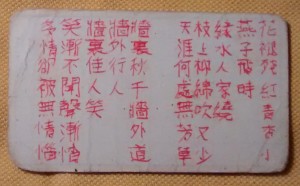 花褪殘紅青杏小
燕子飛時
綠水人家繞
枝上柳綿吹又少
天涯何處無芳草
牆裏秋千牆外道
牆外行人
牆裏佳人笑
笑漸不聞聲漸悄
多情卻被無情惱